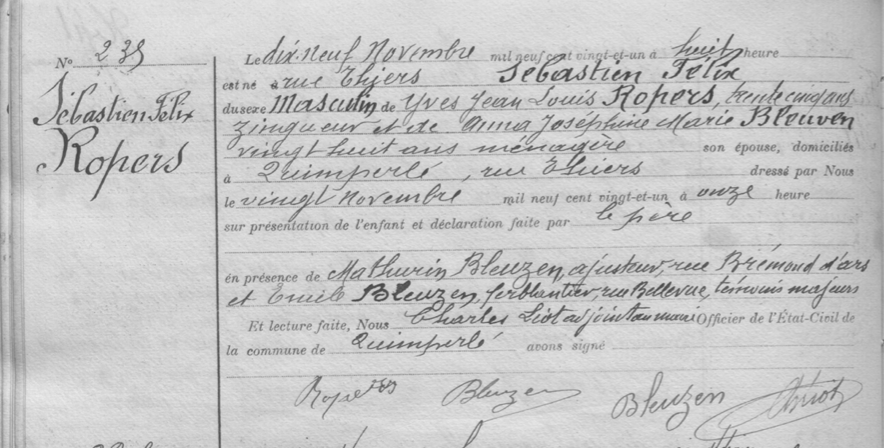 N° 235
Sébastien Félix
Ropers
Le dix-neuf Novembre mil neuf cent vingt-et-un à huit heure
est né à rue Thiers Sébastien Félix
du sexe Masculin de Yves Jean Louis Ropers, trente cinq ans
zingueur et de Anna Joséphine Marie Bleuven
vingt huit ans ménagère son épouse, domiciliés
à Quimperlé, rue Thiers dressé par Nous
le vingt Novembre mil neuf cent vingt-et-un à onze heure
sur présentation de l'enfant et déclaration faite par le père
en présence de Mathurin Bleuzen, ajusteur, rue Brémond d'ars
et Emile Bleuzen, ferblantier, rue Bellevue, témoins majeurs
Et lecture faite, Nous Charles Liot adjoint au maire Officier de l'État-Civil de
la commune de Quimperlé avons signé
Ropers Bleuzen Bleuzen